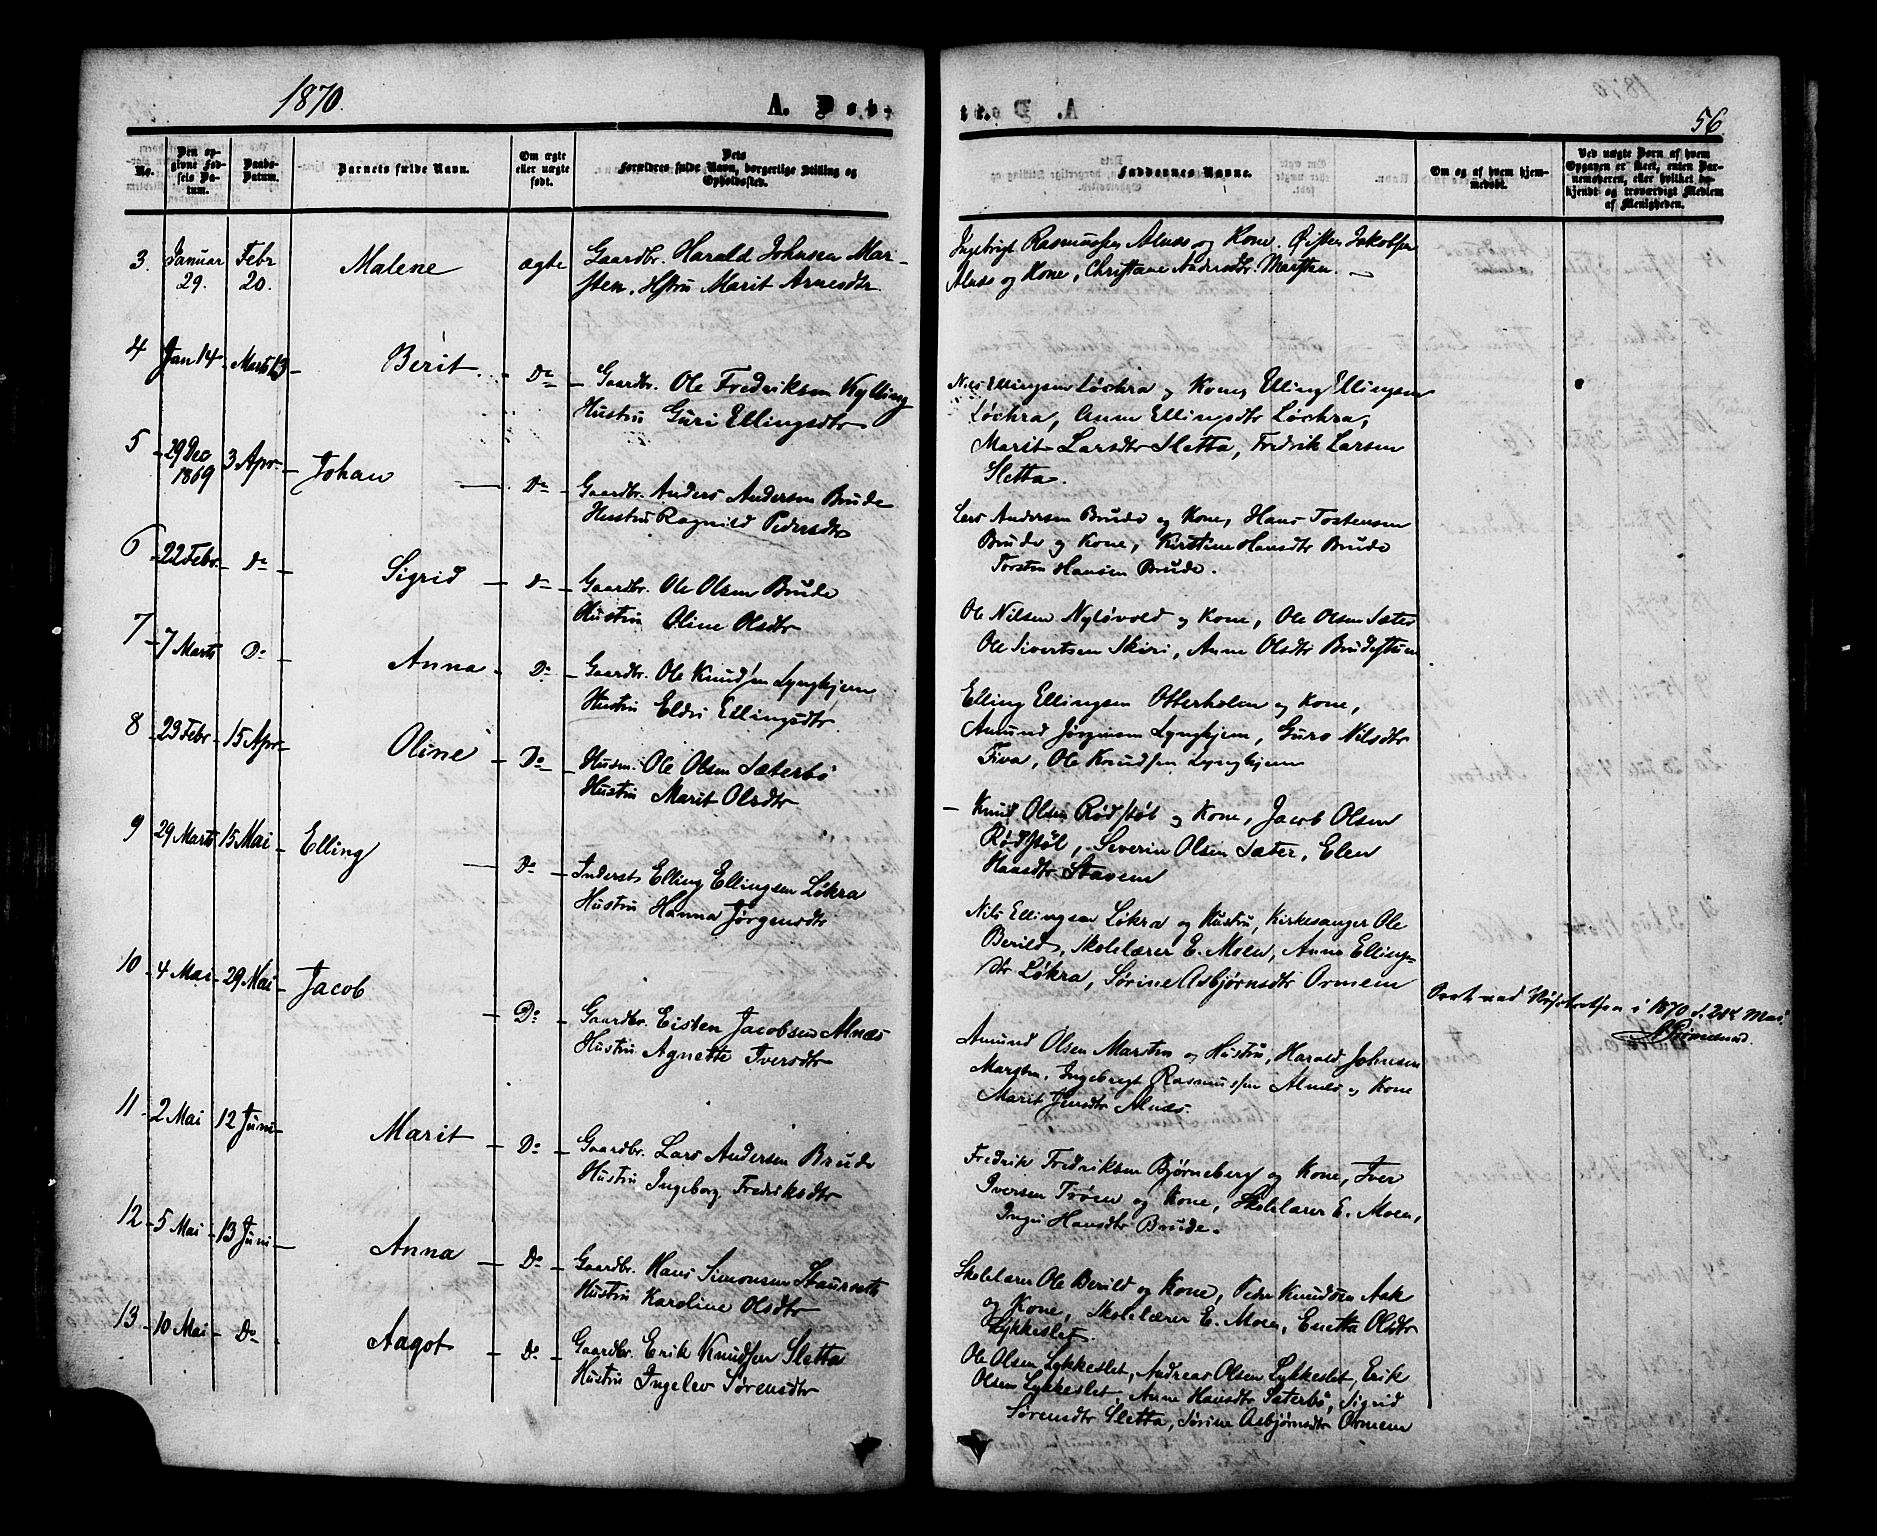 1870.
A. Døbte.
56
No.
Den opgivne Fødsels Datum.
Daabs-Datum.
Barnets fulde Navn.
Om ægte eller uægte født.
Dets Forældres fulde Navn, borgerlige Stilling og Opholdssted.
Faddernes Navne.
Om og af hvem hjemmedøbt.
Ved uægte Børn af hvem Opgaven er skeet, enten Barnemoderen, eller hvilket bekjendt og troværdigt Medlem af Menigheden.
3. Januar 29. Febr 20. Malene ægte
Gaardbr. Harald Johnsen Mar-
sten, Hstru Marit Arnesdtr.
Ingebrigt Rasmussen Alnæs og Kone. Øisten Jakobsen
Alnæs og Kone, Christiane Andersdtr. Marsten.
4 Jan 14 Marts 13 Berit. Do
Gaardbr. Ole Fredriksen Kylling
Hustru Guri Ellingsdtr
Nils Ellingsen Løchra og Kone, Elling Ellingsen
Løchra, Anne Ellingsdtr Løchra,
Marit Larsdtr Sletta, Fredrik Larsen
Sletta.
5 29 Dec 1869 3 Apr Johan Do
Gaardbr. Anders Andersen Brude
Hustru Ragnild Pedersdtr
Lars Andersen Brude og Kone, Hans Tostensen
Brude og Kone, Kirstine Hansdtr Brude
Torsten Hansen Brude.
6 22 Febr Do Sigrid Do
Gaardbr. Ole Olsen Brude
Hustru Oline Olsdtr
Ole Nilsen Nyløvold og Kone, Ole Olsen Sæter
Ole Sivertsen Skiri, Anne Olsdtr Brudestuen
7 7 Marts Do Anna Do
Gaardbr. Ole Knudsen Lynghjem
Hustru Eldri Ellingsdtr.
Elling Ellingsen Otterholm og Kone,
Amund Jørgensen Lynghjem, Guro Nilsdtr
Fiva, Ole Knudsen Lynghjem
8 23 Febr 15 Apr Oline Do
Husm. Ole Olsen Sæterbø
Hustru Marit Olsdtr
Knud Olsen Rødstøl og Kone, Jacob Olsen
Rødstøl, Severin Olsen Sæter, Elen
Hansdtr Stavem
9 29 Marts 15 Mai Elling Do
Inderst Elling Ellingsen Løkra
Hustru Hanna Jørgensdtr
Nils Ellingsen Løkra og Hustru, Kirkesanger Ole
Berild, Skolelærer E. Moen, Anne Ellings-
dtr Løkra, Sørine Asbjørnsdtr Ormem
10 4 Mai 29 Mai Jacob Do
Gaardbr. Eisten Jacobsen Alnæs
Hustru Agnette Iversdtr
Amund Olsen Marsten og Hustru, Harald Johnsen
Marsten, Ingebrigt Rasmussen Alnæs og Kone
Marit Jensdtr Alnæs.
i 1870 d. 24 Mai
11. 2 Mai 12 Juni Marit Do
Gaardbr. Lars Andersen Brude
Hustru Ingeborg Fredriksdtr
Fredrik Fredriksen Bjørneberg og Kone, Iver
Iversen Trøen og Kone, Skolelærer E. Moen,
Hansdtr Brude.
12 5 Mai 13 Juni Anna Do
Gaardbr. Hans Simonsen Staurseth
Hustru Karoline Olsdtr
Skolelærer Ole Berild og Kone, Peder Knudsen Aak
og Kone, Skolelærer E. Moen, Enetta Olsdtr
Lykkeslet.
13 10 Mai Do Aagot Do
Gaardbr. Erik Knudsen Sletta
Hustru Ingelev Sørensdtr
Ole Olsen Lykkeslet, Andreas Olsen Lykkeslet, Erik
Olsen Lykkeslet, Anne Hansdtr Sæterbø, Sigrid
Sørensdtr Sletta, Sørine Asbjørnsdtr Ormem